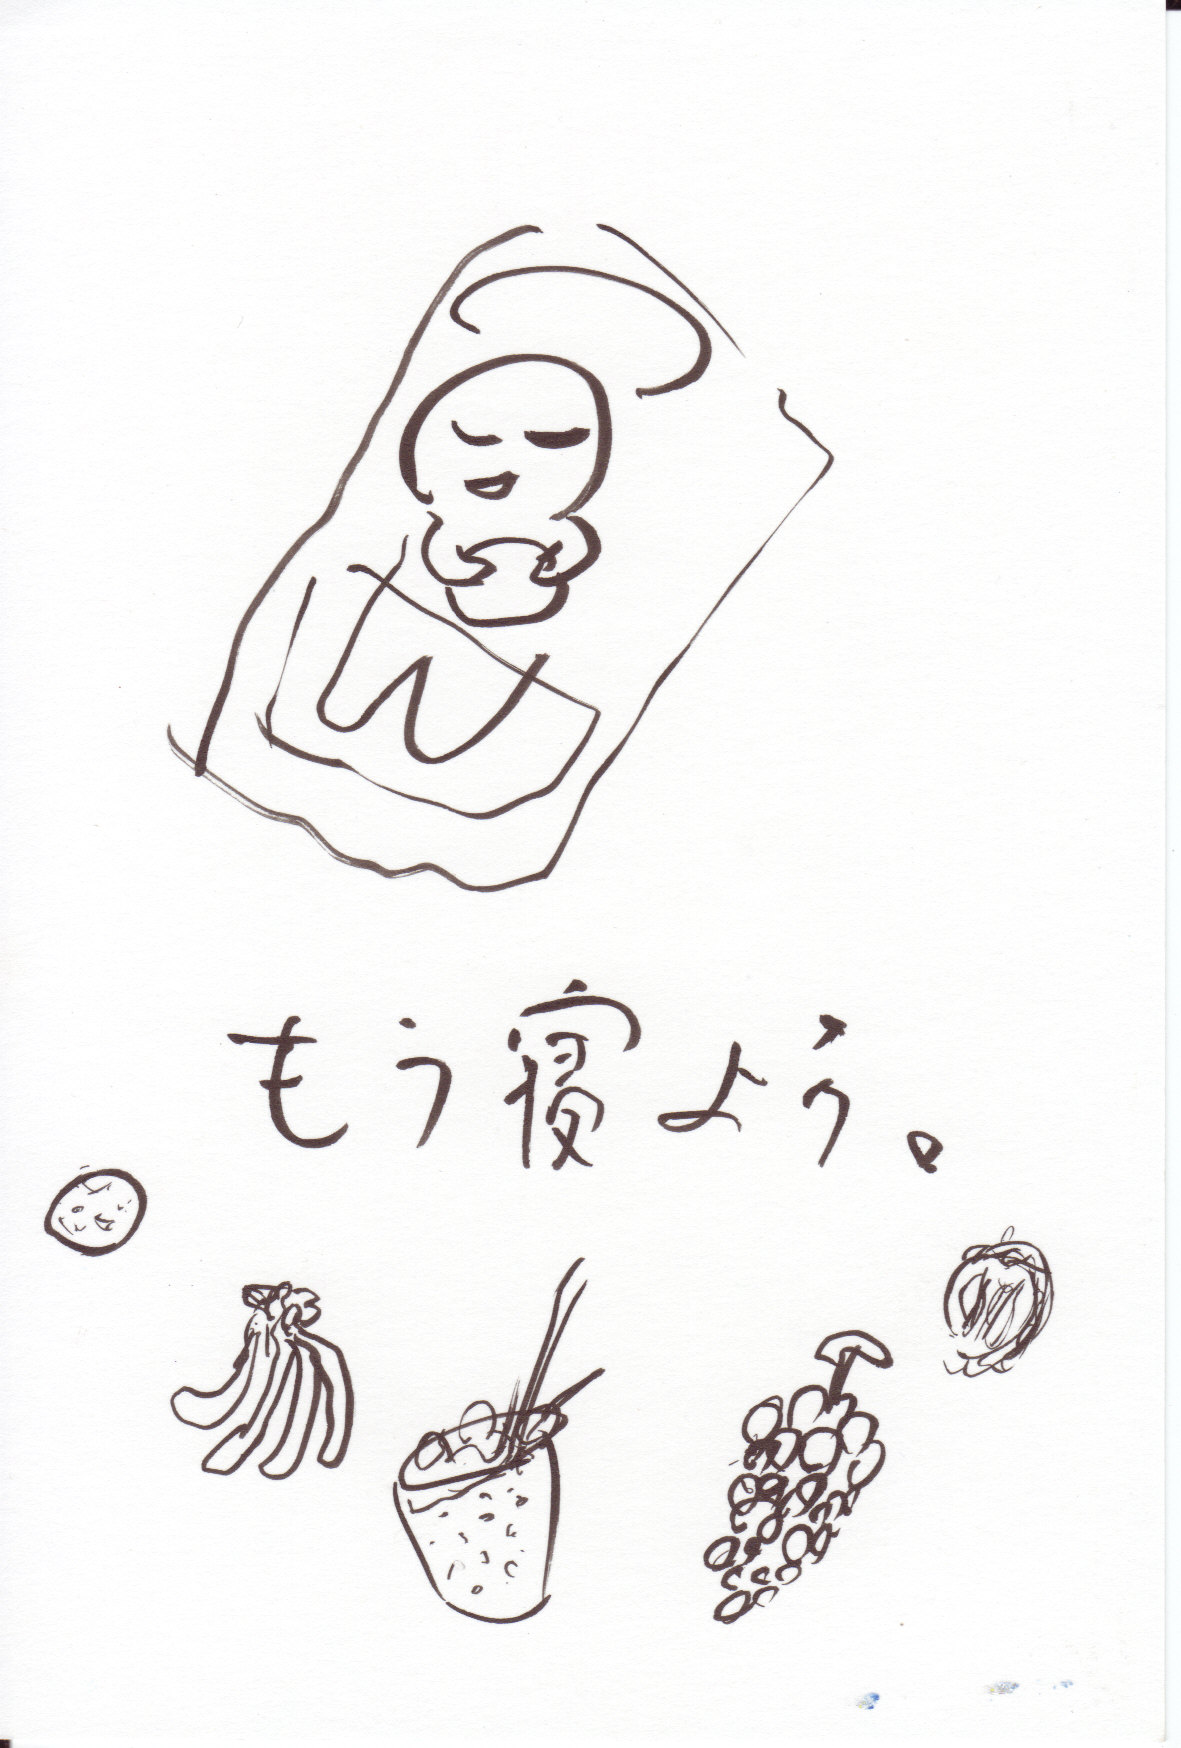 もう寝よう。